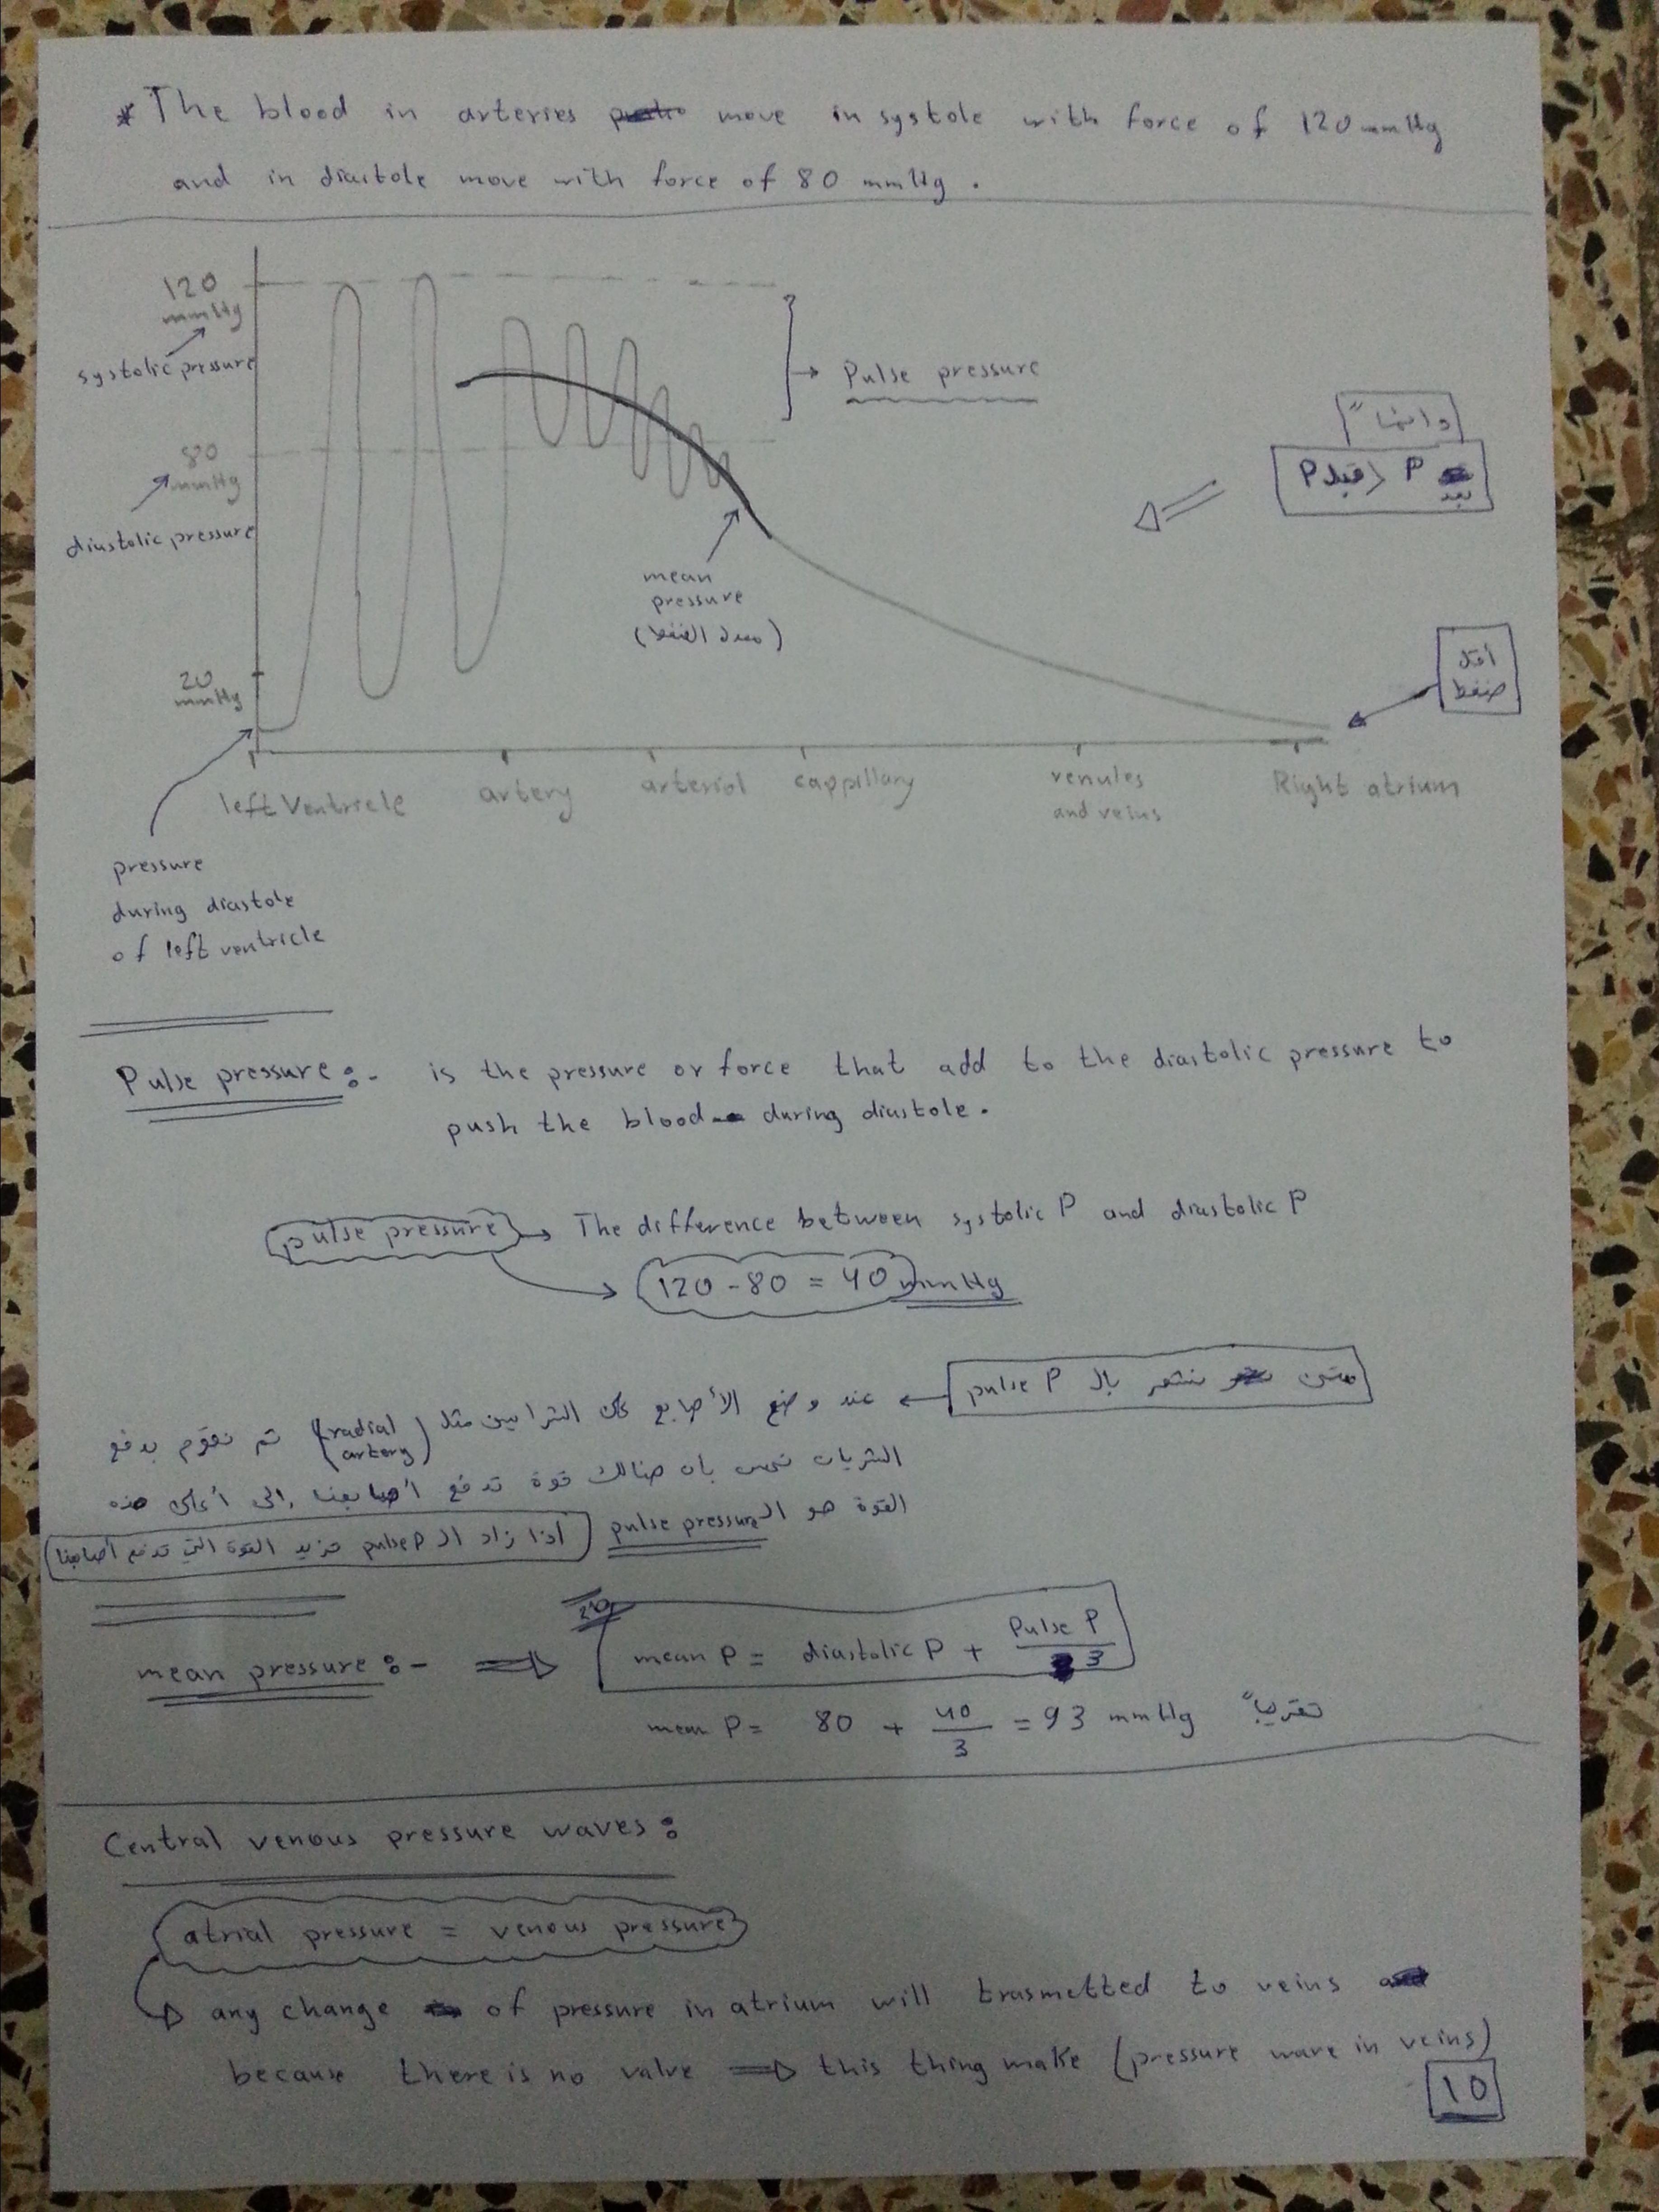 * The blood in arteries move in systole with force of 120 mmHg
and in diastole move with force of 80 mmHg .
120
mmHg
systolic pressure
80
mmHg
diastolic pressure
20
mmHg
Pulse pressure
دائماً
P قبل > P
بعد
mean
pressure
(معدل الضغط)
أقل
ضغط
left Ventricle
artery
arteriol
cappillary
venules
and veins
Right atrium
pressure
during diastole
of left ventricle
Pulse pressure :- is the pressure or force that add to the diastolic pressure to
push the blood during diastole.
pulse pressure → The difference between systolic P and diastolic P
120 - 80 = 40 mmHg
متى نشعر بال pulse P ← عند وضع الأصابع على الشرايين مثل (radial artery) ثم نقوم بدفع
الشريان نحس بان هنالك قوة تدفع أصابعنا الى أعلى هذه
القوة هو ال pulse pressure
اذا زاد ال pulse P تزيد القوة التي تدفع أصابعنا
mean pressure :- ⇒ mean P = diastolic P + Pulse P / 3
mean P = 80 + 40 / 3 = 93 mmHg تقريباً
Central venous pressure waves :
atrial pressure = venous pressure
any change of pressure in atrium will trasmetted to veins
because there is no valve ⇒ this thing make (pressure wave in veins)
10